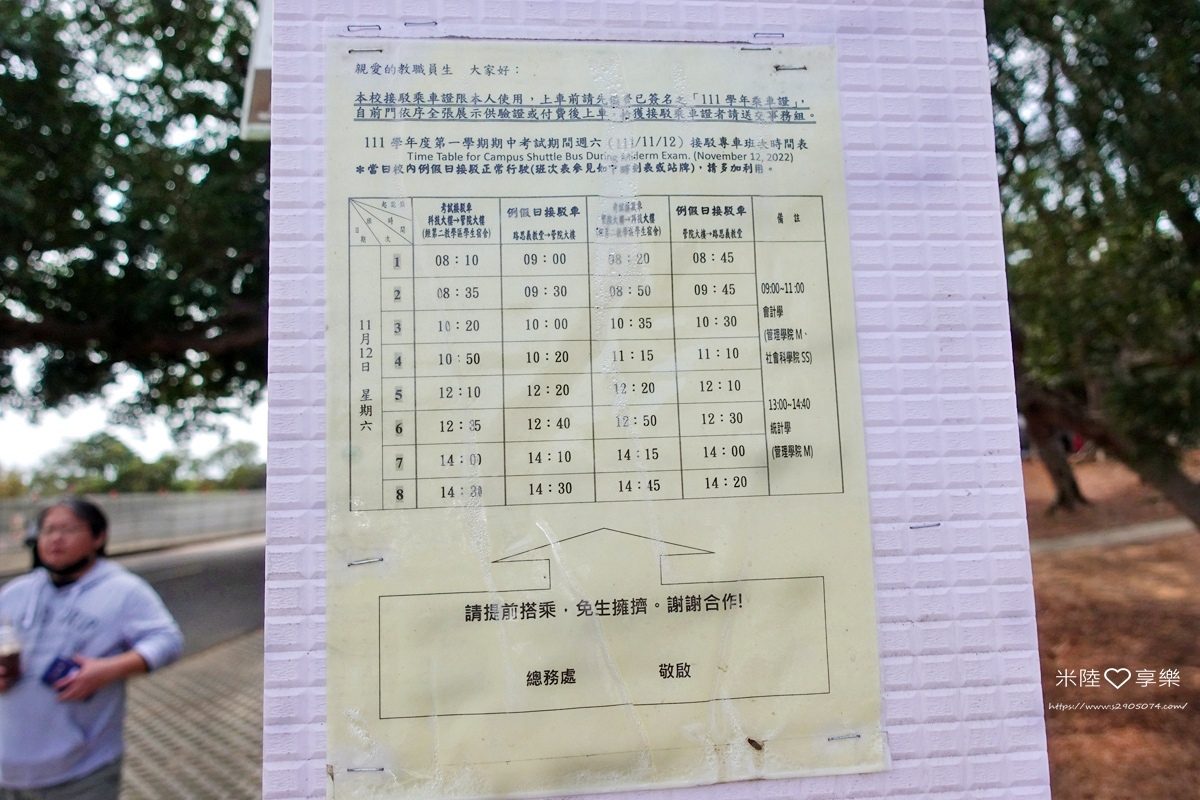 親愛的教職員生 大家好：
本校接駁乘車證限本人使用，上車前請先簽已簽名之「111學年乘車證」，
自前門依序全張展示供驗證或付費後上車，獲接駁乘車證者請送交事務組。
111學年度第一學期期中考試期間週六（111/11/12）接駁專車班次時間表
Time Table for Campus Shuttle Bus During Exam. (November 12, 2022)
＊當日校內例假日接駁正常行駛(班次表參見如下時刻表或站牌)，請多加利用。
起訖站
班 時
日 間
期 次
考試接駁車 例假日接駁車 考試接駁車 例假日接駁車 備 註
科技大樓→管院大樓 路思義教堂→管院大樓 管院大樓→科技大樓 管院大樓→路思義教堂
(經第二教學區學生宿舍) (經第二教學區學生宿舍)
11月12日 星期六
1 08：10 09：00 08：20 08：45
2 08：35 09：30 08：50 09：45
3 10：20 10：00 10：35 10：30
4 10：50 10：20 11：15 11：10
5 12：10 12：20 12：20 12：10
6 12：35 12：40 12：50 12：30
7 14：00 14：10 14：15 14：00
8 14：30 14：30 14：45 14：20
09:00~11:00
會計學
(管理學院 M、
社會科學院 SS)
13:00~14:40
統計學
(管理學院 M)
請提前搭乘，免生擁擠。謝謝合作!
總務處 敬啟
米陸♡享樂
https://www.s2905074.com/